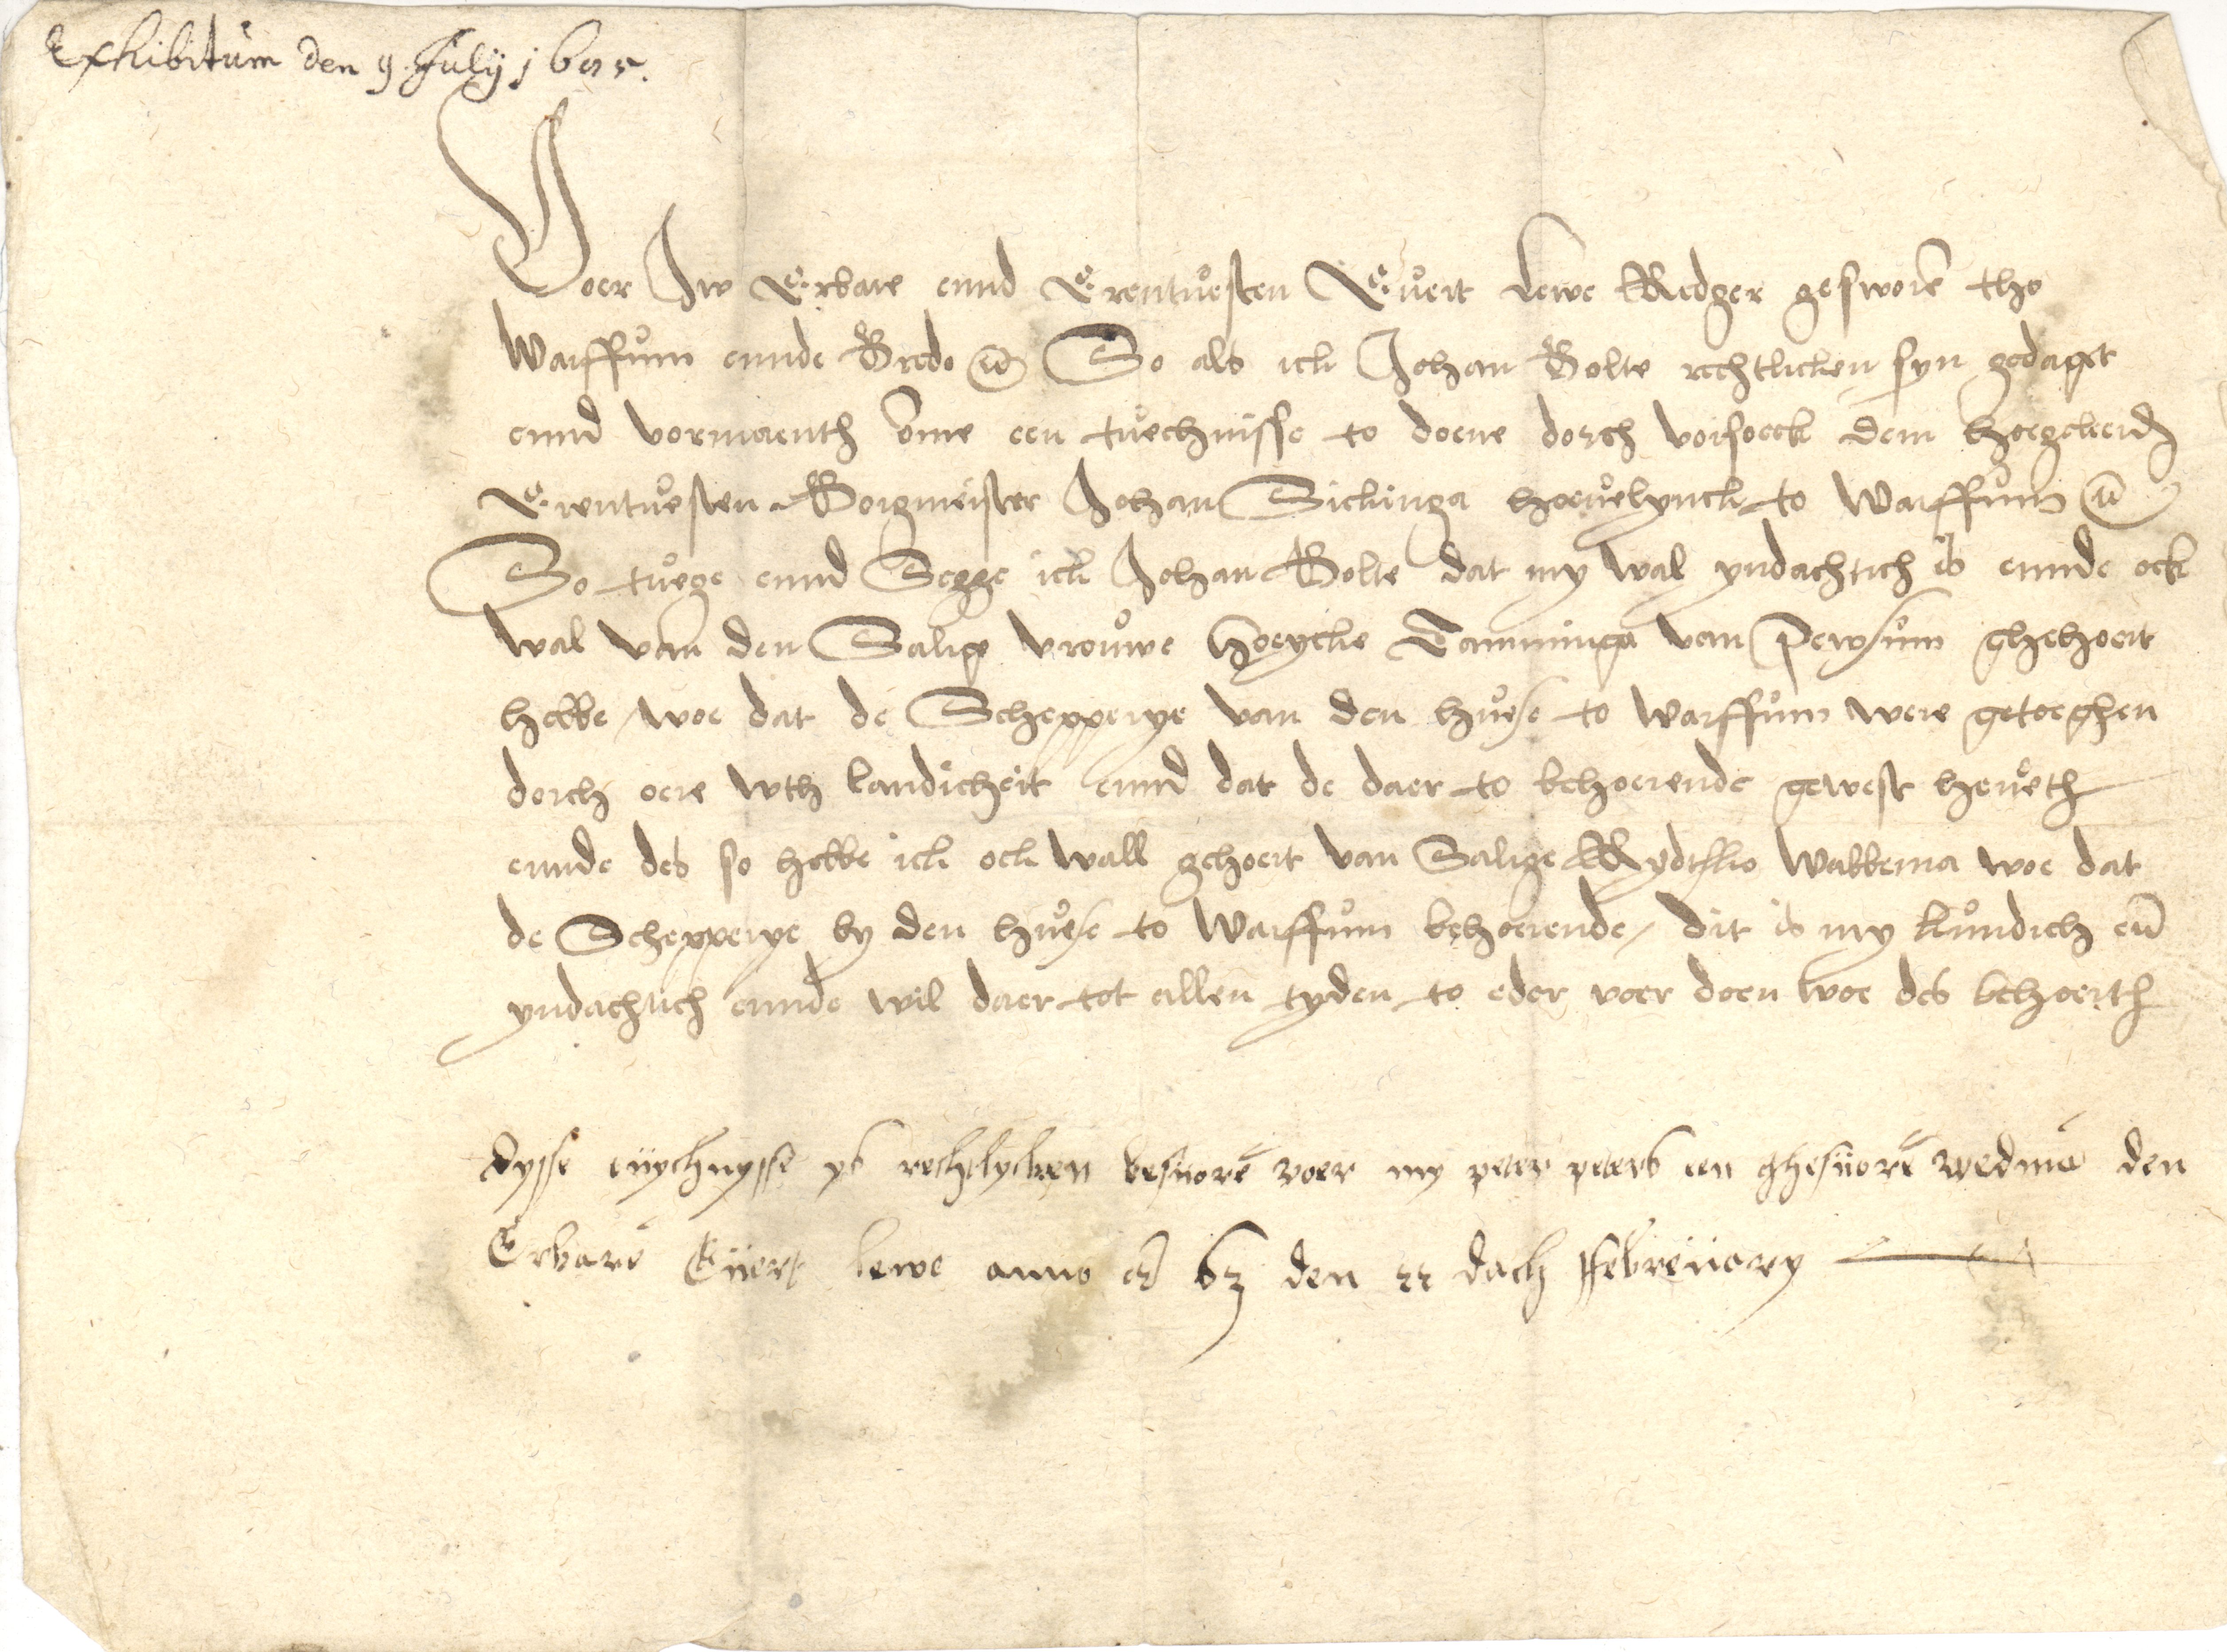 Exhibitum den 9. Julij 1605.
Voer Jw Erbare ennd Erentuesten Euert Lewe Redger gesworē tho
Warffum ennde Bredo So als ick Johan Bolte rechtlicken syn gedaget
ennd vormaenth ōme een tuechnisse to doene dorch vorsoeck dem hoegeleerd
Erentuesten Borgmeister Johan Sickinga hoeuelynck to Warffum
So tuege ennd Segge ick Johan Bolte dat my wal yndachtich is ennde ock
wal van den Salige vrouwe Hoeycke Tamminga van Pewsum ghehoert
hebbe / woe dat de Schepperye van den huese to Warffum were getoeghen
dorch oere wth landicheit ennd dat de daer to behoerende gewest heueth
ennde des so hebbe ick ock wall gehoert van Salige Wabbema woe dat
de Schepperye by den huese to Warffum behoerende / dit is my kundich eñ
yndachtich ennde wil daer tot allen tyden to eder voer doen woe des behoerth
dysse tüychnysse ys rechtlycken besuorē voer my peter peters een ghesuorē wedmā den
Erbarē Eüert lewe anno 63 den 22 dach ffebreüary